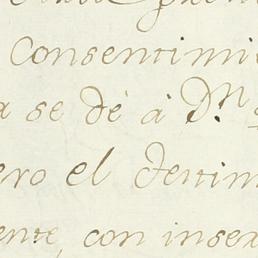 Consentimi
a se dè à D.n
ero el destim
ente, con inser